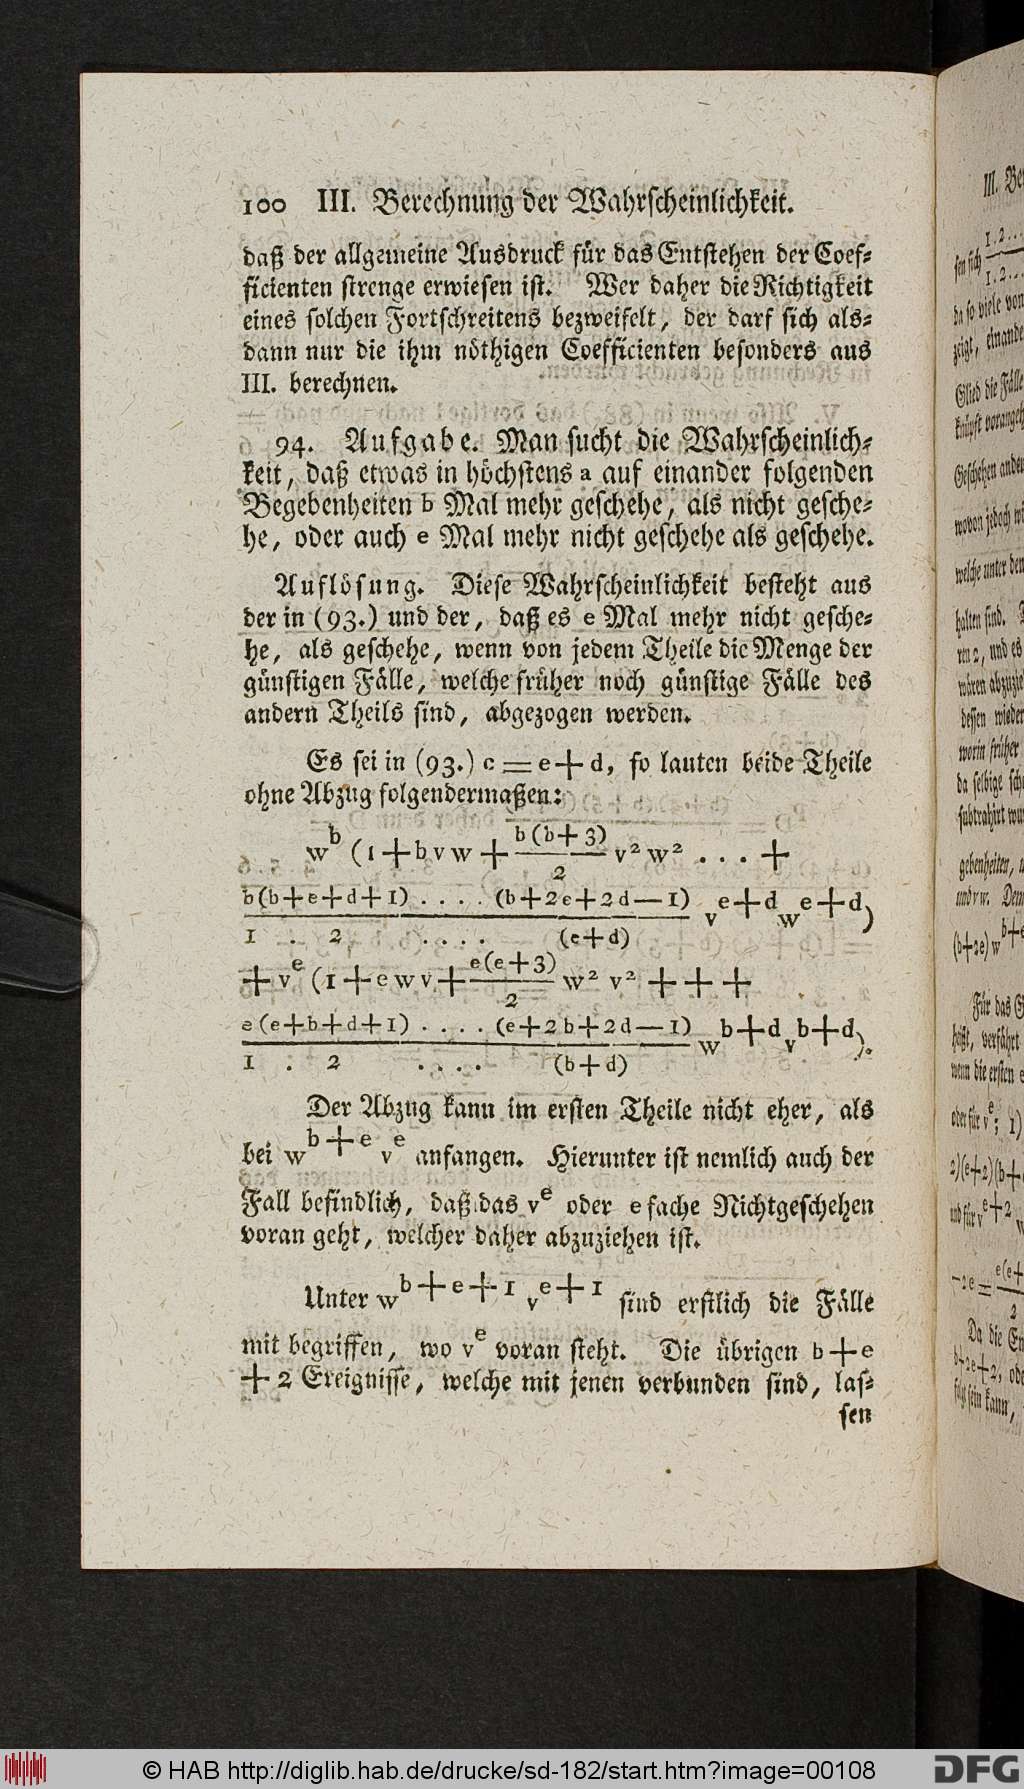 100 III. Berechnung der Wahrscheinlichkeit.
daß der allgemeine Ausdruck für das Entstehen der Coef-
ficienten strenge erwiesen ist. Wer daher die Richtigkeit
eines solchen Fortschreitens bezweifelt, der darf sich als-
dann nur die ihm nöthigen Coefficienten besonders aus
III. berechnen.
94. Aufgabe. Man sucht die Wahrscheinlich-
keit, daß etwas in höchstens a auf einander folgenden
Begebenheiten b Mal mehr geschehe, als nicht gesche-
he, oder auch e Mal mehr nicht geschehe als geschehe.
Auflösung. Diese Wahrscheinlichkeit besteht aus
der in (93.) und der, daß es e Mal mehr nicht gesche-
he, als geschehe, wenn von jedem Theile die Menge der
günstigen Fälle, welche früher noch günstige Fälle des
andern Theils sind, abgezogen werden.
Es sei in (93.) c = e + d, so lauten beide Theile
ohne Abzug folgendermaßen:
w^b (1 + b v w + b(b+3)/2 v² w² ... +
b(b+e+d+1) .... (b+2e+2d—1) v^{e+d} w^{e+d})
1 . 2 .... (e+d)
+ v^e (1 + e w v + e(e+3)/2 w² v² + + +
e(e+b+d+1) .... (e+2b+2d—1) w^{b+d} v^{b+d}).
1 . 2 .... (b+d)
Der Abzug kann im ersten Theile nicht eher, als
bei w^{b+e} v^e anfangen. Hierunter ist nemlich auch der
Fall befindlich, daß das v^e oder e fache Nichtgeschehen
voran geht, welcher daher abzuziehen ist.
Unter w^{b+e+1} v^{e+1} sind erstlich die Fälle
mit begriffen, wo v^e voran steht. Die übrigen b + e
+ 2 Ereignisse, welche mit jenen verbunden sind, las-
sen
© HAB http://diglib.hab.de/drucke/sd-182/start.htm?image=00108
DFG